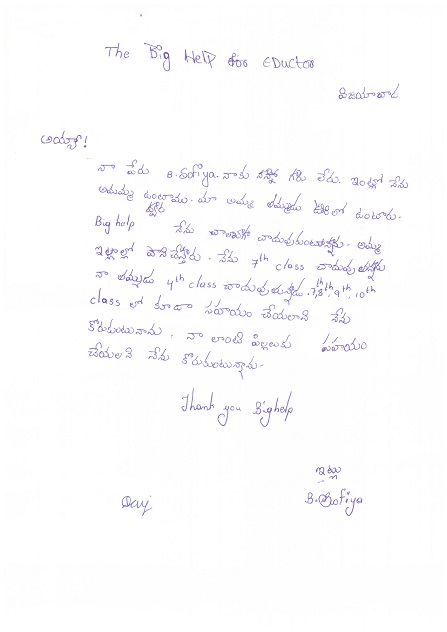 The Big Help for EDuctor
విజయావాడ
అయ్యా!
నా పేరు B.Sofiya. నాకు నాన్న గారు లేరు. ఇంట్లో నేను
అమమ్మ ఉంటాము. మా అమ్మ తమ్ముడు ఊరిలో ఉంటారు.
Big help ద్వార నేను చాదువుకుంటున్నాను. అమ్మ
ఇళ్లాల్లో పాని చేస్తారు. నేను 7th class చాదువుతున్నాను
నా తమ్ముడు 4th class చాదువుతున్నాడు. 7th, 8th, 9th, 10th
class లో కూడా సహాయం చేయలాని నేను
కోరుకుంటునాను. నా లాంటి పిల్లలుకు సహయం
చేయలని నేను కోరుకుంటున్నాను.
Thank you Bighelp
ఇట్లు
B.Sofiya